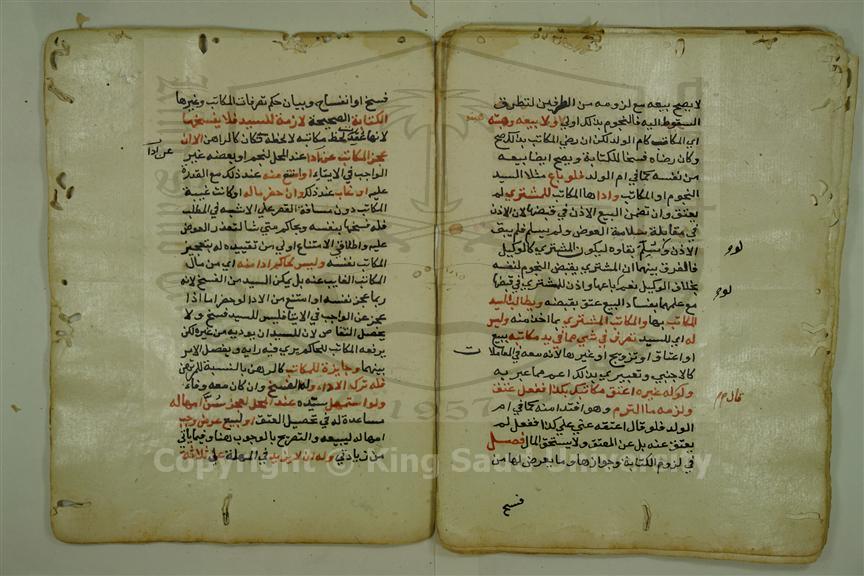 لا يصح بيعه مع لزومه من الطرفين لتطرق
السقوط اليه فالنجوم بذلك اولى ولا بيعه وهبته
اي المكاتب كام الولد لكن ان رضي المكاتب بذلك صح
وكان رضاه فسخا للكتابة ويصح ايضا بيعه
من نفسه كما في ام الولد فلو باع مثلا السيد
النجوم او المكاتب واداها المكاتب للمشتري لم
يعتق وان تضمن البيع الاذن في قبضها لان الاذن
في مقابلة سلامة العوض ولم يسلم فلم يبق
الاذن ولو سلم بقاوه ليكون المشتري كالوكيل
فالفرق بينهما ان المشتري يقبض النجوم لنفسه
بخلاف الوكيل نعم لو باعها واذن للمشتري في قبضها
مع علمهما بفساد البيع عتق بقبضه ويطالب السيد
المكاتب بها والمكاتب المشتري بما اخذ منه وليس
له اي للسيد تصرف في شي مما في يد مكاتبه ببيع
او اعتاق او تزويج او غيرها لانه معه في المعاملات
كالاجنبي وتعبيري بذلك اعم مما عبر به
ولو قال له غيره اعتق مكاتبك بكذا ففعل عتق
ولزمه ما التزم وهو افتدا منه كما في ام
الولد فلو قال اعتقه عني على كذا ففعل لم
يعتق عنه بل عن المعتق ولا يستحق المال فصل
في لزوم الكتابة وجوازها وما يعرض لها من
فسخ
فسخ او انفساخ وبيان حكم تصرفات المكاتب وغيرها
الكتابة الصحيحة لازمة للسيد فلا يفسخها
لانها عقدت لحظ مكاتبه لا لحظه فكان كالراهن الا ان
عجز المكاتب عن ادا عند المحل لنجم او بعضه غير
الواجب في الايتاء او امتنع منه عند ذلك مع القدرة
عليه او غاب عند ذلك وان حضر ماله او كانت غيبة
المكاتب دون مسافة القصر على الاشبه في المطلب
فله فسخها بنفسه وبحاكم متى شا لتعذر العوض
عليه واطلاقي الامتناع اولى من تقييده له بتعجيز
المكاتب نفسه وليس لحاكم ادا منه اي من مال
المكاتب الغايب عنه بل يمكن السيد من الفسخ لانه
ربما عجز نفسه او امتنع من الادا لو حضر اما اذا
عجز عن الواجب في الايتا فليس للسيد فسخ ولا
يحصل التقاص لان للسيد ان يوديه من غيره لكن
يرفعه المكاتب للحاكم يرى فيه رايه ويفصل الامر
بينهما وجايزة للمكاتب كالرهن بالنسبة للمرتهن
فله ترك الاداء وله الفسخ وان كان معه وفاء
ولو استمهل سيده عند المحل لعجز سن امهاله
مساعدة له في تحصيل العتق او لبيع عرض وجب
امهاله ليبيعه والتصريح بالوجوب هنا وفيما ياتي
من زيادتي وله ان لا يزيد في المهلة على ثلاثة